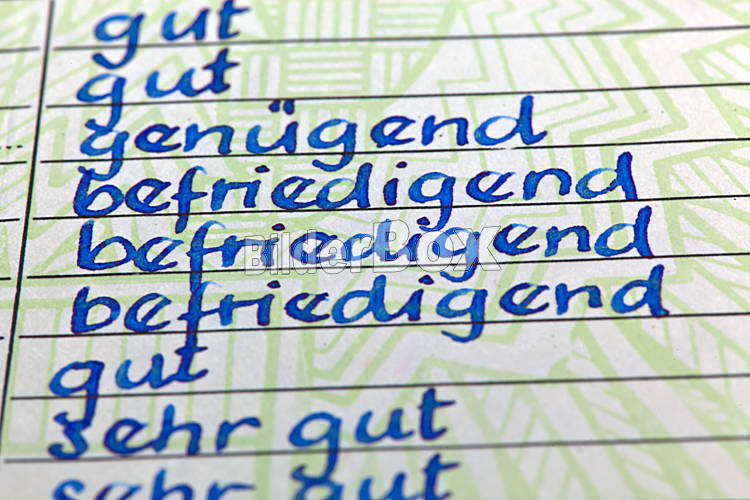 gut
gut
genügend
befriedigend
befriedigend
BilderBox
befriedigend
gut
sehr gut
sehr gut